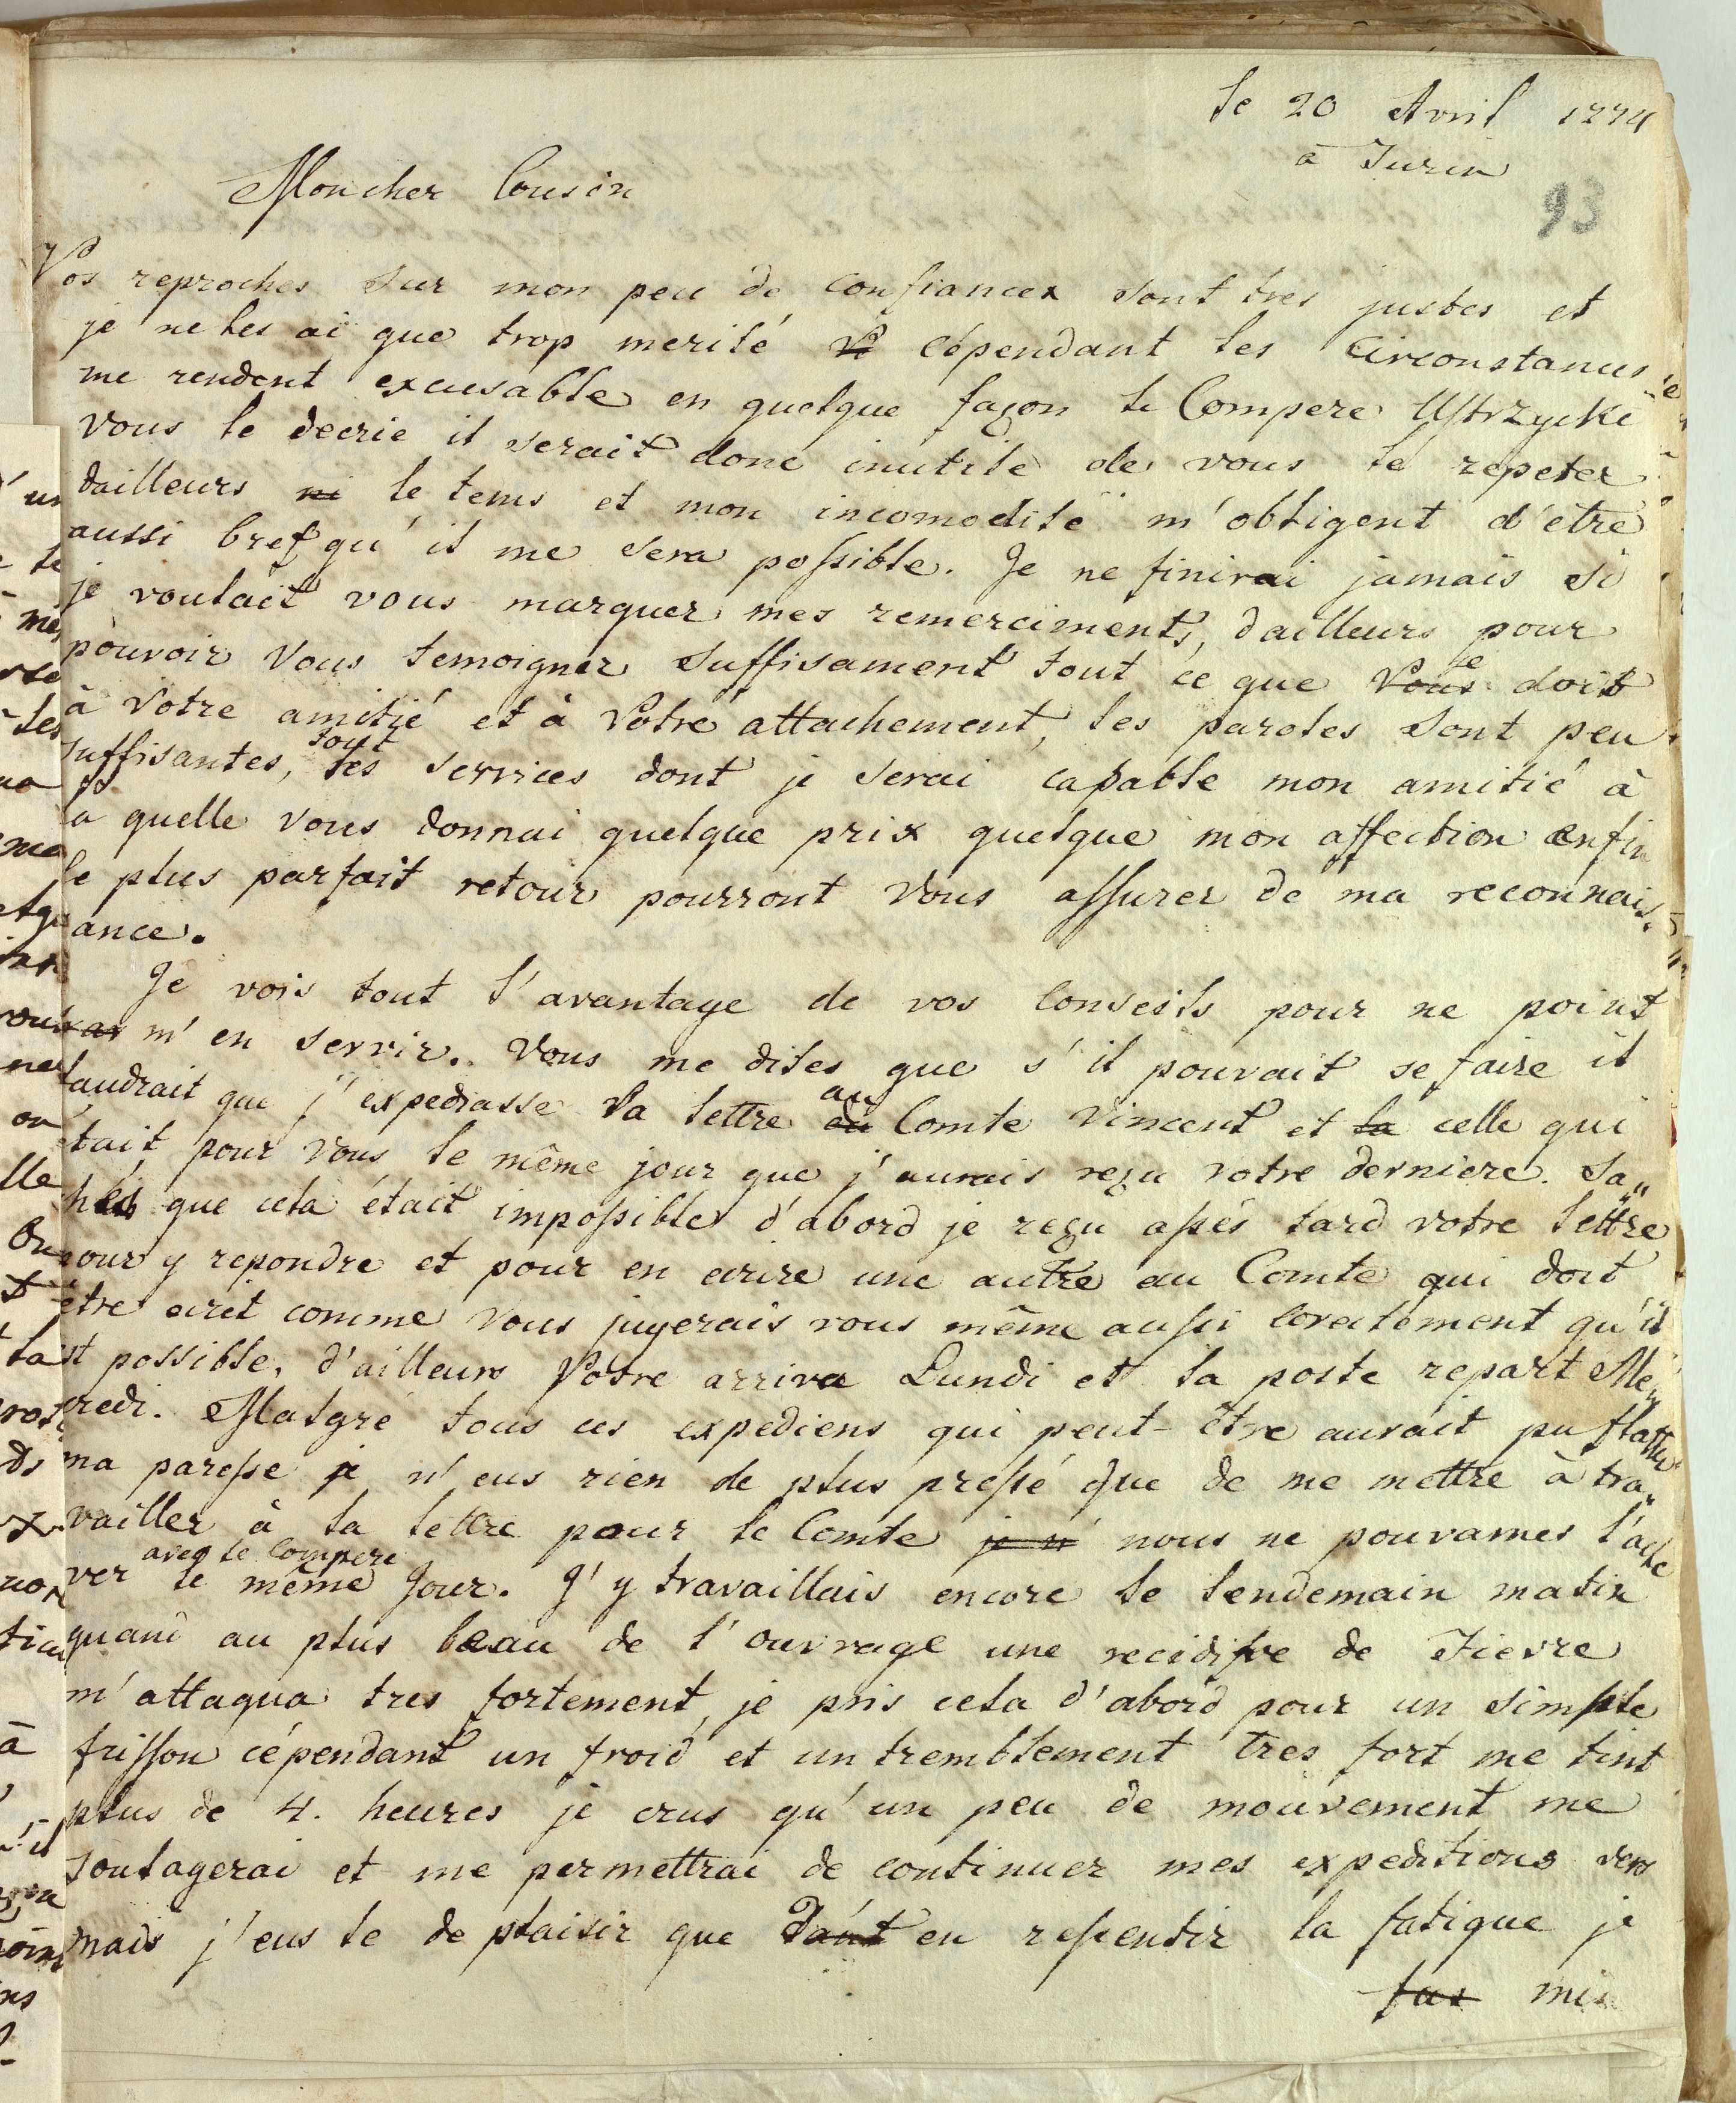 le 20 Avril 1774
à Turin
93
Mon cher Cousin
Vos reproches sur mon peu de confiance sont tres justes et
je ne les ai que trop merité cépendant les Circonstances
me rendent excusable en quelque façon le Compere Ustrzycki
vous le decrie il serait donc inutile de vous le repeter
dailleurs ni le tems et mon incomodité m'obligent d'être
aussi bref qu'il me sera possible. Je ne finirai jamais si
je voulait vous marquer mes remerciments, dailleurs pour
pouvoir Vous temoigner suffisament tout ce que Vous je doit
à Votre amitié et à Votre attachement, les paroles sont peu
suffisantes, tout les services dont je serai capable mon amitié à
la quelle vous donnai quelque prix quelque mon affection enfin
le plus parfait retour pourront Vous assurer de ma reconnais
ance.
Je vois tout l'avantage de vos Conseils pour ne point
m'en servir. Vous me dites que s'il pouvait se faire il
faudrait que j'expediasse la lettre du au Comte Vincent et la celle qui
etait pour vous le même jour que j'aurais reçu votre derniere. Sa„
chés que cela était impossible d'abord je reçu assés tard votre lettre
pour y repondre et pour en ecrire une autre au Comte qui doit
être ecrit comme Vous jugerais vous même aussi Corectement qu'il
est possible, d'ailleurs Votre arriva Lundi et la poste repart Me„
credi. Malgré tous ces expediens qui peut-être aurait pu flatter
ma paresse je n'eus rien de plus pressé que de me mettre à tra„
vailler à la lettre pour le Comte je n' nous ne pouvames l'ache
ver avec le Compere le même Jour. J'y travaillais encore le lendemain matin
quand au plus beau de l'ouvrage une recidive de Fievre
m'attaqua tres fortement, je pris cela d'abord pour un simple
frisson cépendant un froid et un tremblement tres fort me tint
plus de 4. heures je crus qu'un peu de mouvement me
soulagerai et me permettrai de continuer mes expeditions
mais j'eus le de plaisir que en ressentir la fatigue je
fus mis